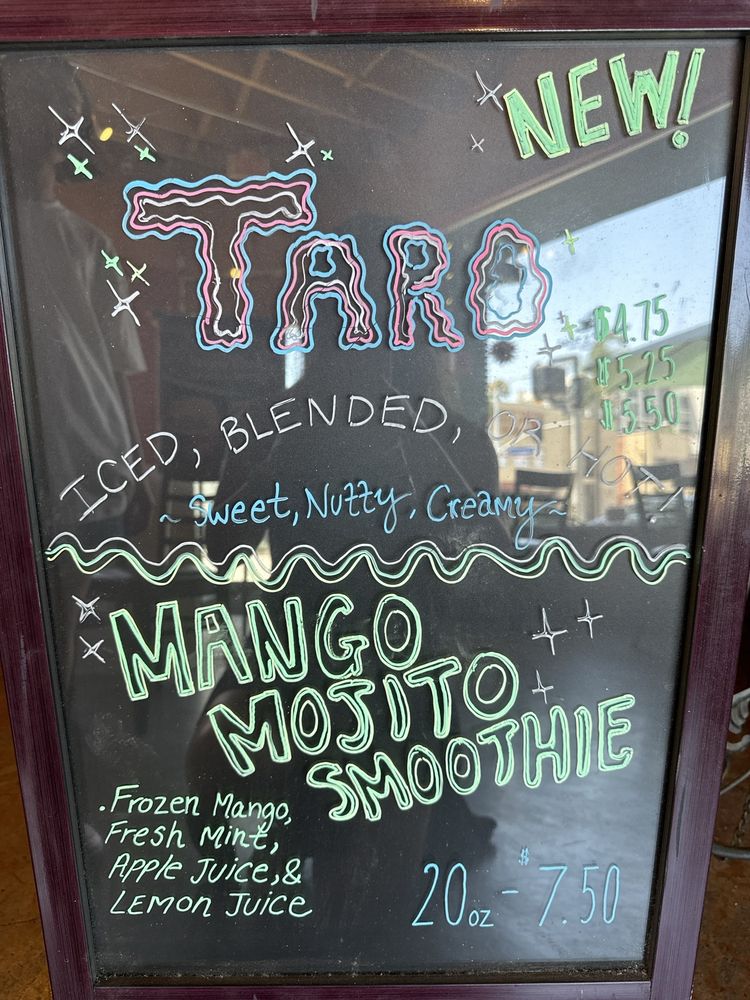 NEW!
TARO
$4.75
$5.25
$5.50
ICED, BLENDED, OR HOT!
~ Sweet, Nutty, Creamy ~
MANGO
MOJITO
SMOOTHIE
. Frozen Mango,
Fresh Mint,
Apple Juice, &
Lemon Juice
20oz - $7.50